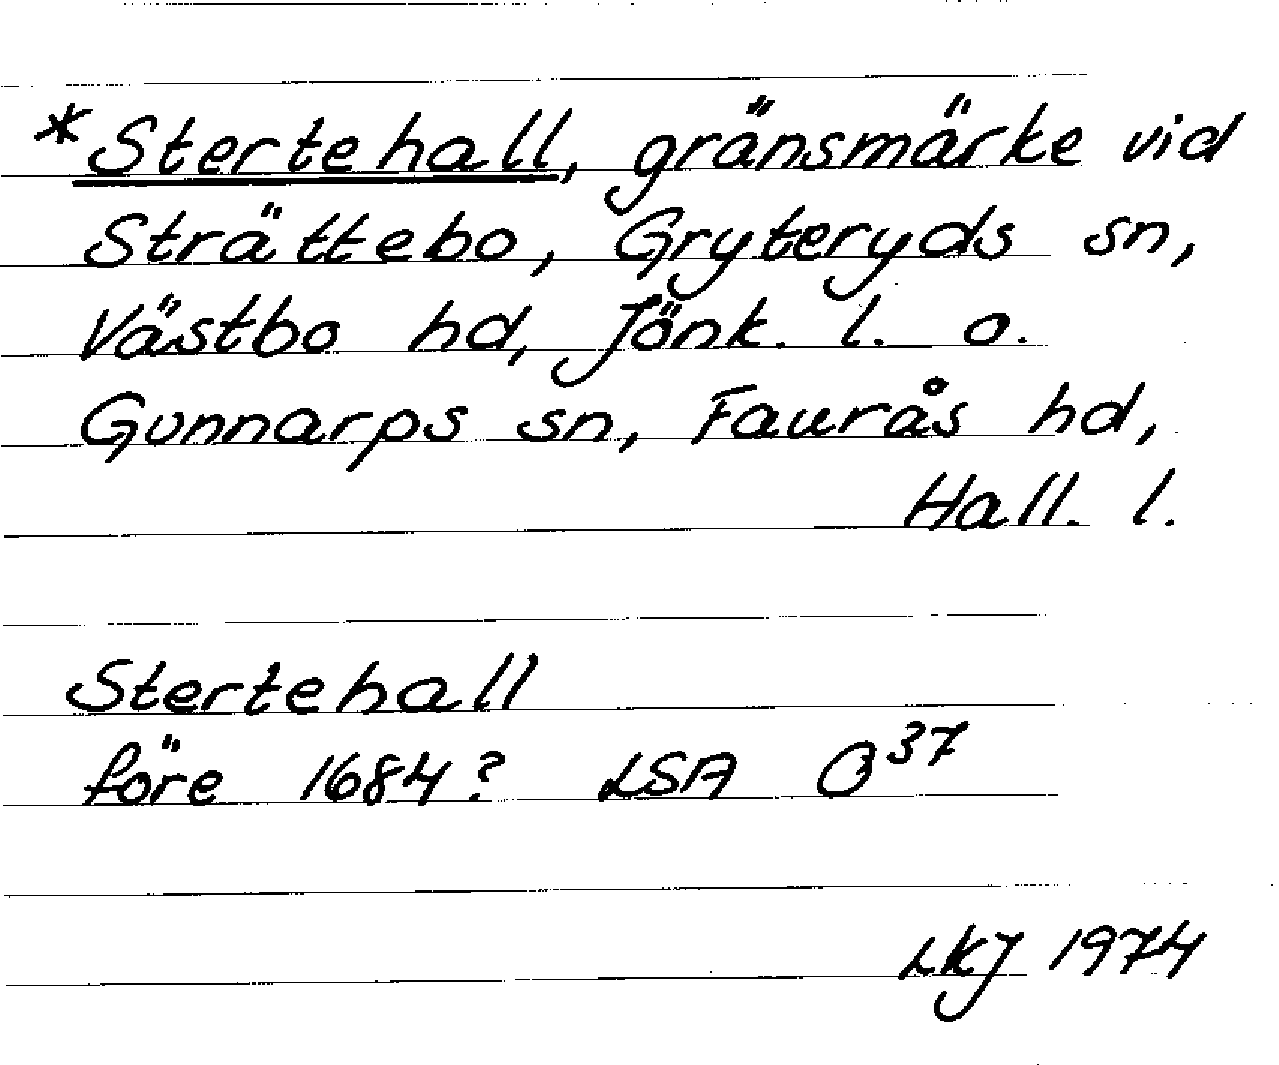 *Stertehall, gränsmärke vid
Strättebo, Gryteryds sn,
Västbo hd, Jönk. l. o.
Gunnarps sn, Faurås hd,
Hall. l.
Stertehall
före 1684? LSA O³⁷
LKJ 1974